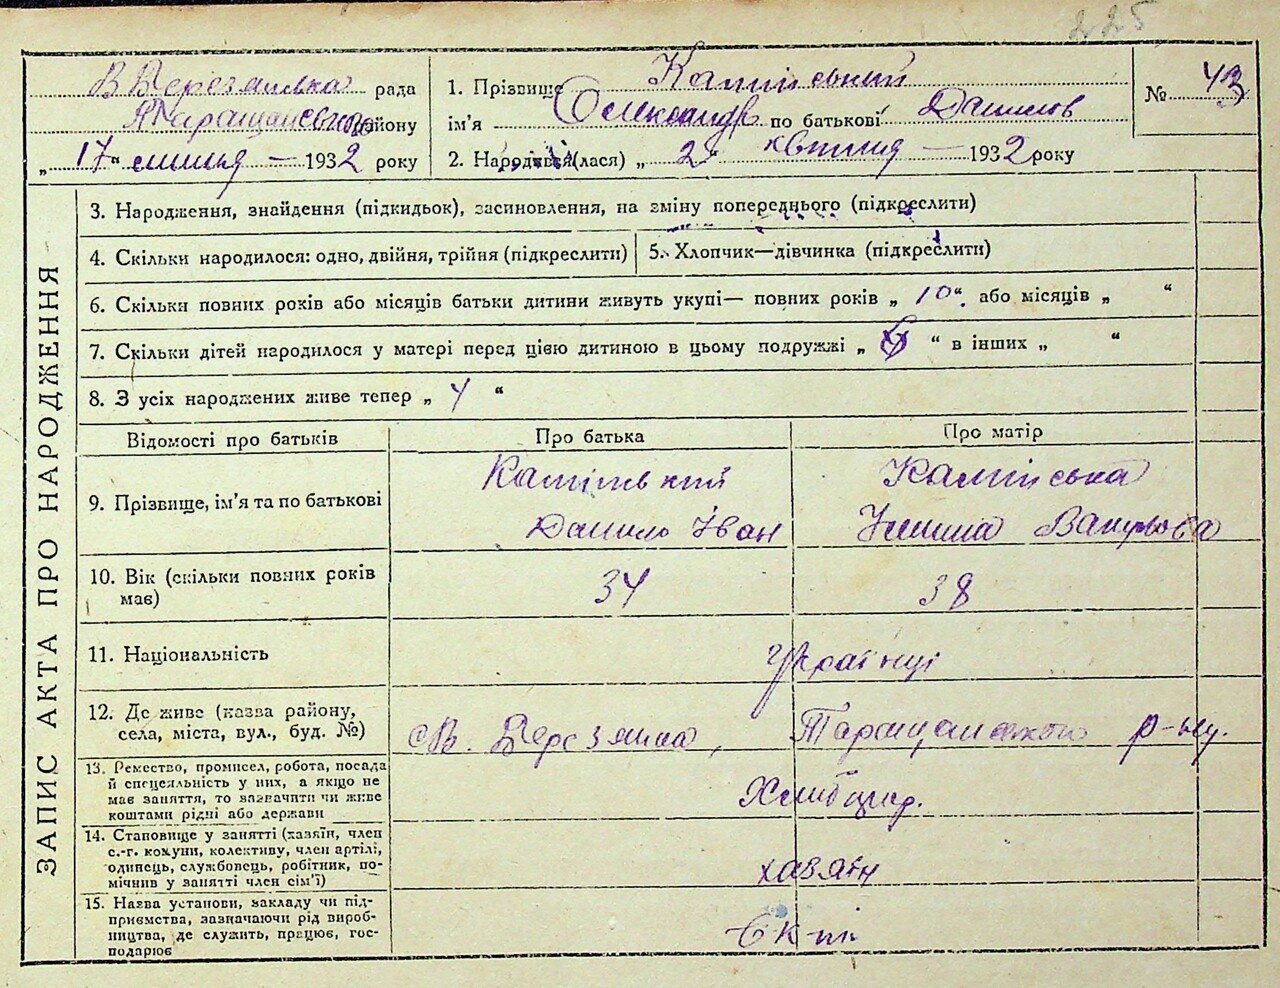 225
ЗАПИС АКТА ПРО НАРОДЖЕННЯ
В Березанська рада
Таращанського району
„17“ липня — 1932 року
1. Прізвище
ім'я Олександр по батькові Данилов
2. Народився (лася) „2“ квітня — 1932 року
№ 43
3. Народження, знайдення (підкидьок), засиновлення, на зміну попереднього (підкреслити)
4. Скільки народилося: одно, двійня, трійня (підкреслити)
5. Хлопчик—дівчинка (підкреслити)
6. Скільки повних років або місяців батьки дитини живуть укупі— повних років „10“ або місяців „ “
7. Скільки дітей народилося у матері перед цією дитиною в цьому подружжі „ “ в інших „ “
8. З усіх народжених живе тепер „4“
Відомості про батьків
Про батька
Про матір
9. Прізвище, ім'я та по батькові
Данило Іван
10. Вік (скільки повних років
має)
34
38
11. Національність
Українці
12. Де живе (назва району,
села, міста, вул., буд. №)
с В. Березянка, Таращанського р-ну.
13. Ремество, промисел, робота, посада
й спецеяльність у них, а якщо не
має заняття, то зазначити чи живе
коштами рідні або держави
Хлибороб.
14. Становище у занятті (хазяїн, член
с.-г. комуни, колективу, член артілі,
одинець, службовець, робітник, по-
мічник у занятті член сім'ї)
хазяїн
15. Назва установи, закладу чи під-
приємства, зазначаючи рід вироб-
ництва, де служить, працює, гос-
подарює